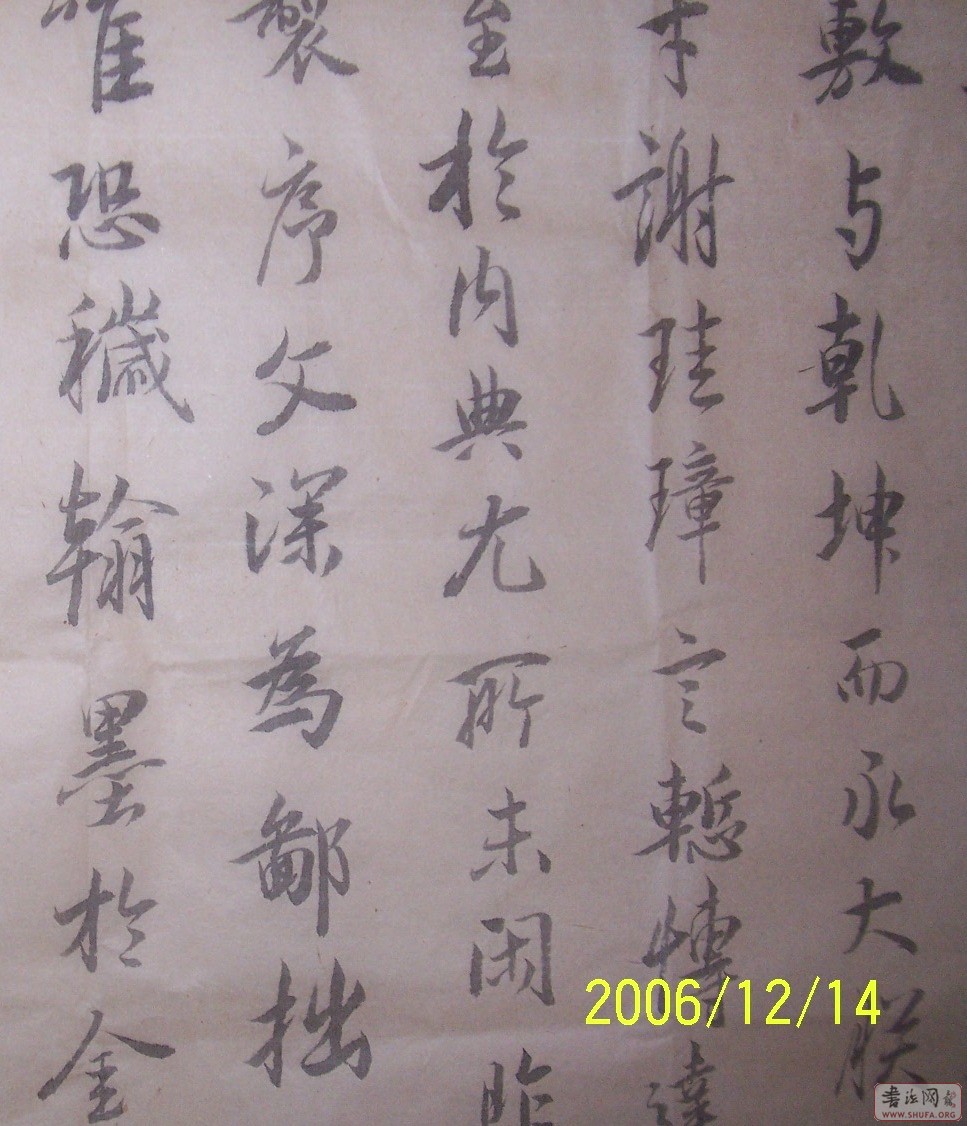 敷与乾坤而永大朕
才謝珪璋言慙愽達
至於内典尤所未閑昨
製序文深為鄙拙
唯恐穢翰墨於金
2006/12/14
書法网
WWW.SHUFA.ORG